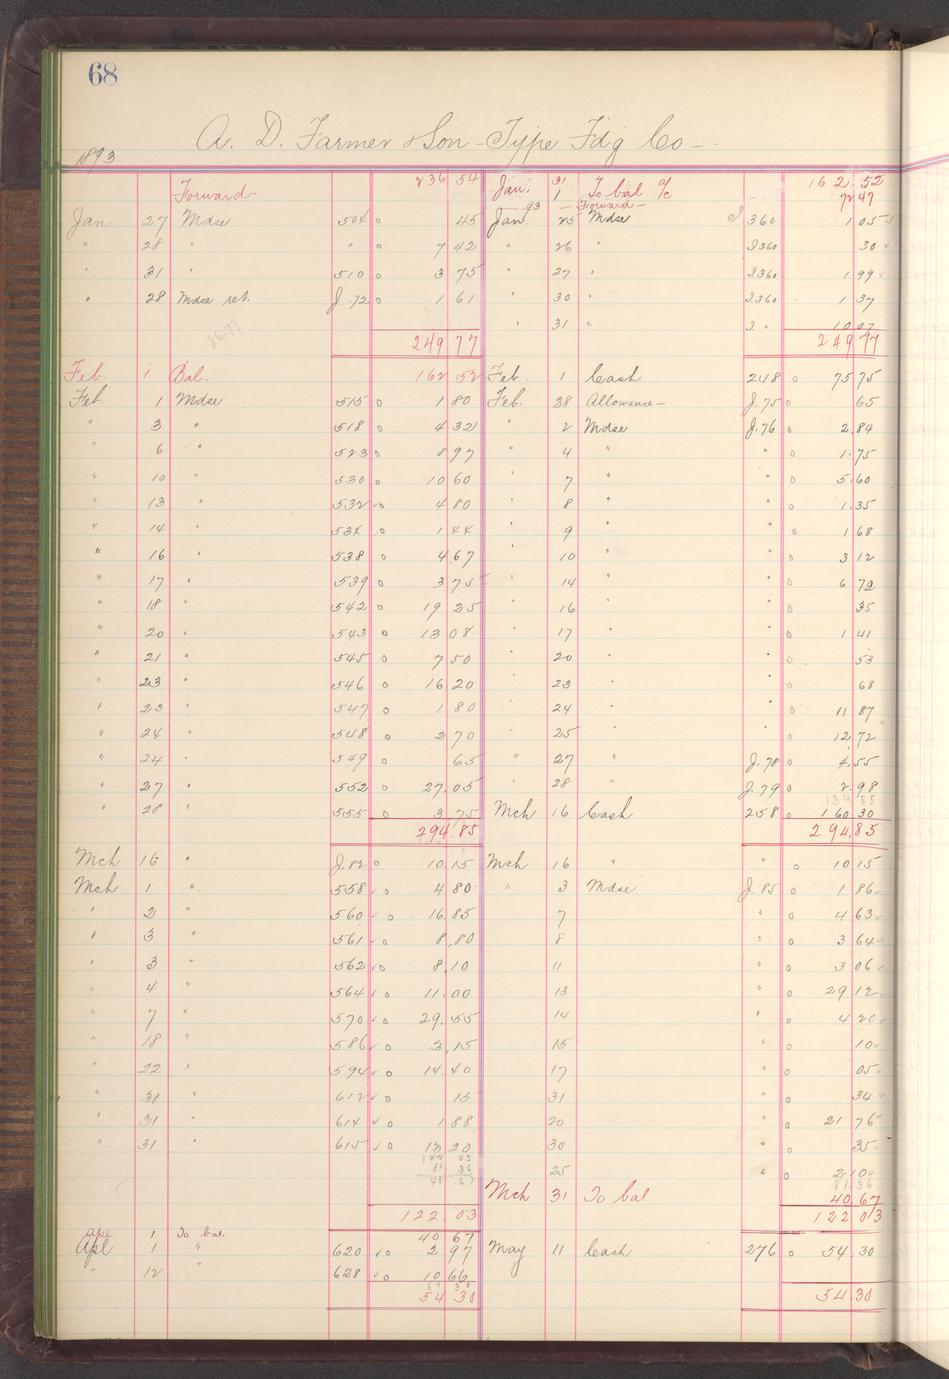 68
A. D. Farmer & Son - Type Fdg Co -
1893
Forward - 236 54 Jan. 31 To bal a/c 162.52
1 Forward - 72 47
Jan 27 Mdse 504 o 45 Jan. 93 25 Mdse J 360 1 05
" 28 " " o 7 42 " 26 " J360 30
" 31 " 510 o 3 75 " 27 " J360 1 99
" 28 Mdse ret. J.72 o 1 61 " 30 " J.360 1 37
" 31 " J. " 10 07
86.77
249 77 249 77
Feb. 1 Bal. 162 52 Feb. 1 Cash 248 o 75 75
Feb. 1 Mdse 515 o 1 80 Feb. 28 Allowance - J.75 o 65
" 3 " 518 o 4 32 " 2 Mdse J.76 o 2.84
" 6 " 523 o 8 97 " 4 " " o 1.75
" 10 " 530 o 10 60 " 7 " " o 5.60
" 13 " 532 o 4 80 " 8 " " o 1.35
" 14 " 534 o 1 44 " 9 " " o 1 68
" 16 " 538 o 4.67 " 10 " " o 3 12
" 17 " 539 o 3 75 " 14 " " o 6 72
" 18 " 542 o 19 35 " 16 " " o 35
" 20 " 543 o 13 08 " 17 " " o 1 41
" 21 " 545 o 7 50 " 20 " " o 53
" 23 " 546 o 16 20 " 23 " " o 68
" 23 " 547 o 1 80 " 24 " " o 11 87
" 24 " 548 o 2 70 " 25 " " o 12.72
" 24 " 549 o 65 " 27 " J.78 o 4.55
" 27 " 552 o 27.05 " 28 " J.79 o 2.98
134 55
" 28 " 555 o 3.75 Mch 16 Cash 258 o 160 30
294.85 294.85
Mch 16 " J.82 o 10.15 Mch 16 " " o 10 15
Mch 1 " 558 o 4 80 " 3 Mdse J.85 o 1 86
" 2 " 560 o 16.85 7 " o 4 63
" 3 " 561 o 8.80 8 " o 3 64
" 3 " 562 o 8.10 11 " o 3 06
" 4 " 564 o 11.00 13 " o 29 12
" 7 " 570 o 29.55 14 " o 4 20
" 18 " 586 o 3.15 15 " o 10
" 22 " 594 o 14.40 17 o 05
" 31 " 612 o 15 31 " o 34
" 31 " 614 o 1 88 20 " o 21 76
" 31 " 615 o 13 20 30 " o 35
122 03
81 36 25 " o 2.10
40.67 81.36
Mch 31 To bal 40.67
122.03 122 03
Apl 1 To bal. 40 67
Apl 1 " 620 o 2 97 May 11 Cash 276 o 54.30
" 12 " 628 o 10 66
54 30 54.30